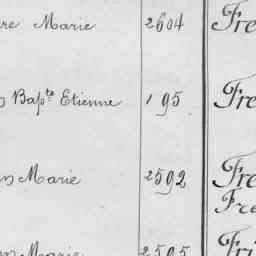 re Marie 2604 Fre
Bapte Etienne 195 Fre
Marie 2592 Fre
Fre
Marie 2595 Fri